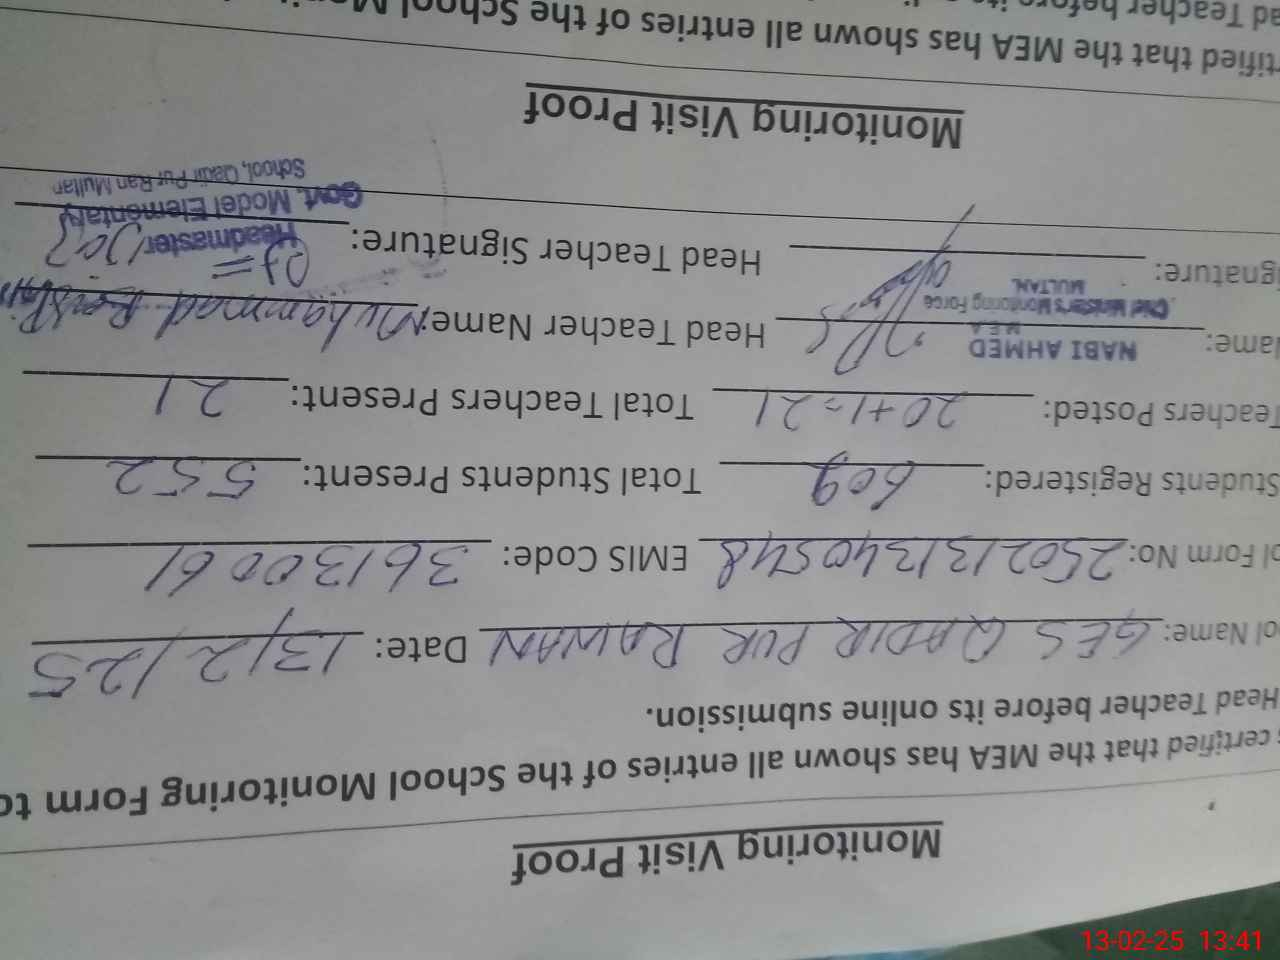 Monitoring Visit Proof
certified that the MEA has shown all entries of the School Monitoring Form to
Head Teacher before its online submission.
ol Name: GES QADIR PUR RAWAN Date: 13/2/25
ol Form No: 2502131340548 EMIS Code: 36130061
Students Registered: 609 Total Students Present: 552
Teachers Posted: 20+1=21 Total Teachers Present: 21
Name: NABI AHMED Head Teacher Name: Muhammad
M E A
Chief Minister's Monitoring Force
MULTAN.
ignature: Head Teacher Signature:
Headmaster
Govt. Model Elementary
School, Qadir Pur Ran Multan
Monitoring Visit Proof
rtified that the MEA has shown all entries of the School
ad Teacher before its
13-02-25 13:41